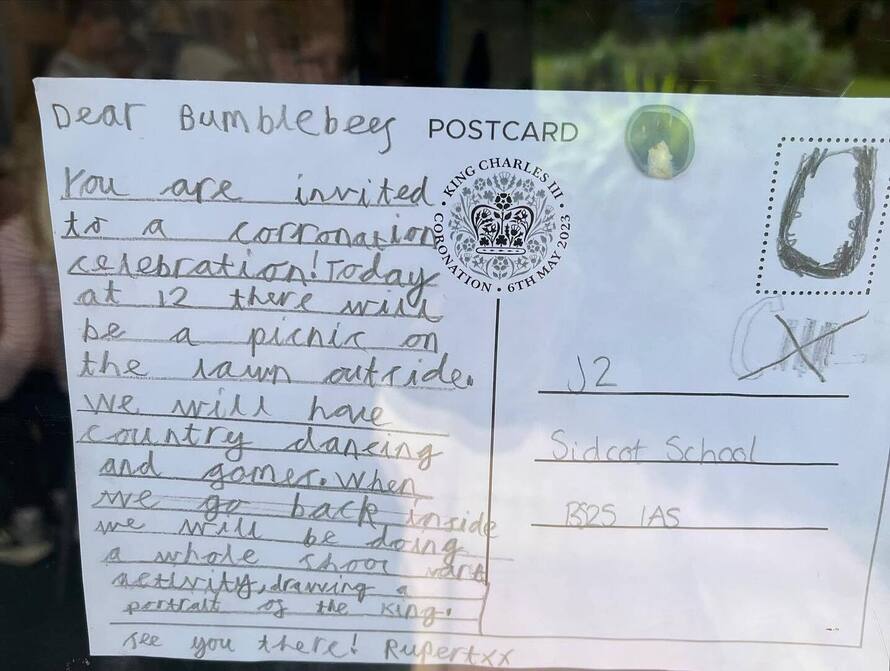 Dear Bumblebees
You are invited
to a corronation
celebration! Today
at 12 there will
be a picnic on
the lawn outside.
We will have
country dancing
and games. When
we go back inside
we will be doing
a whole shool
activity, drawing a
portrait of the King.
see you there! Rupert xx
POSTCARD
KING CHARLES III
CORONATION • 6TH MAY 2023
J2
Sidcot School
BS25 1AS